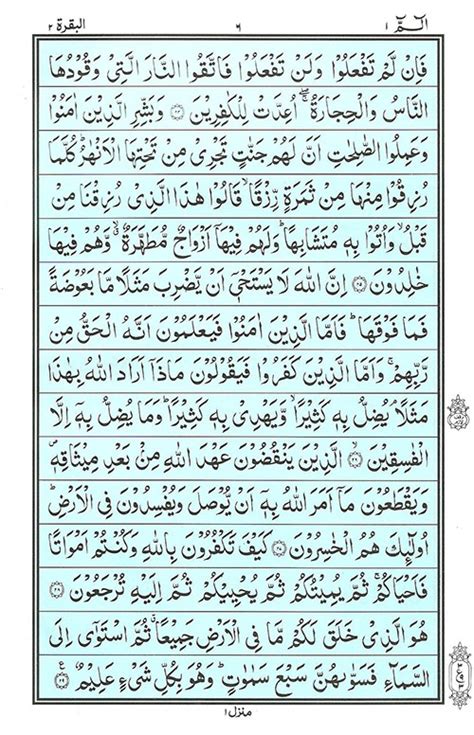 الٓمّٓ ١ ٦ البقرة ٢
فَاِنْ لَّمْ تَفْعَلُوْا وَلَنْ تَفْعَلُوْا فَاتَّقُوا النَّارَ الَّتِیْ وَقُوْدُهَا
النَّاسُ وَالْحِجَارَةُ ۖۚ اُعِدَّتْ لِلْكٰفِرِیْنَ ۝٢٤ وَبَشِّرِ الَّذِیْنَ اٰمَنُوْا
وَعَمِلُوا الصّٰلِحٰتِ اَنَّ لَهُمْ جَنّٰتٍ تَجْرِیْ مِنْ تَحْتِهَا الْاَنْهٰرُ ؕ كُلَّمَا
رُزِقُوْا مِنْهَا مِنْ ثَمَرَةٍ رِّزْقًا ۙ قَالُوْا هٰذَا الَّذِیْ رُزِقْنَا مِنْ
قَبْلُ ۙ وَاُتُوْا بِهٖ مُتَشَابِهًا ؕ وَلَهُمْ فِیْهَاۤ اَزْوَاجٌ مُّطَهَّرَةٌ ۙ وَّهُمْ فِیْهَا
خٰلِدُوْنَ ۝٢٥ اِنَّ اللّٰهَ لَا یَسْتَحْیٖۤ اَنْ یَّضْرِبَ مَثَلًا مَّا بَعُوْضَةً
فَمَا فَوْقَهَا ؕ فَاَمَّا الَّذِیْنَ اٰمَنُوْا فَیَعْلَمُوْنَ اَنَّهُ الْحَقُّ مِنْ
رَّبِّهِمْ ۚ وَاَمَّا الَّذِیْنَ كَفَرُوْا فَیَقُوْلُوْنَ مَاذَاۤ اَرَادَ اللّٰهُ بِهٰذَا
مَثَلًا ۘ یُضِلُّ بِهٖ كَثِیْرًا ۙ وَّیَهْدِیْ بِهٖ كَثِیْرًا ؕ وَمَا یُضِلُّ بِهٖۤ اِلَّا
الْفٰسِقِیْنَ ۝٢٦ الَّذِیْنَ یَنْقُضُوْنَ عَهْدَ اللّٰهِ مِنْۢ بَعْدِ مِیْثَاقِهٖ ۪
وَیَقْطَعُوْنَ مَاۤ اَمَرَ اللّٰهُ بِهٖۤ اَنْ یُّوْصَلَ وَیُفْسِدُوْنَ فِی الْاَرْضِ ؕ
اُولٰٓئِكَ هُمُ الْخٰسِرُوْنَ ۝٢٧ كَیْفَ تَكْفُرُوْنَ بِاللّٰهِ وَكُنْتُمْ اَمْوَاتًا
فَاَحْیَاكُمْ ۚ ثُمَّ یُمِیْتُكُمْ ثُمَّ یُحْیِیْكُمْ ثُمَّ اِلَیْهِ تُرْجَعُوْنَ ۝٢٨
هُوَ الَّذِیْ خَلَقَ لَكُمْ مَّا فِی الْاَرْضِ جَمِیْعًا ۗ ثُمَّ اسْتَوٰۤی اِلَی
السَّمَآءِ فَسَوّٰىهُنَّ سَبْعَ سَمٰوٰتٍ ؕ وَهُوَ بِكُلِّ شَیْءٍ عَلِیْمٌ ۝٢٩ ع
منزل ١